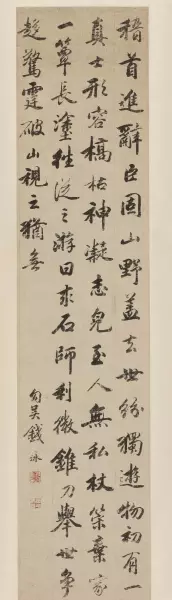 稽首進辭臣固山野蓋去世紛獨遊物初有一
真士形容槁枯神凝志完至人無私杖策棄家
一簞長塗往從之游曰求石師利徽錐刀舉世争
趍驚霆破山視之猶無
勾吳錢泳